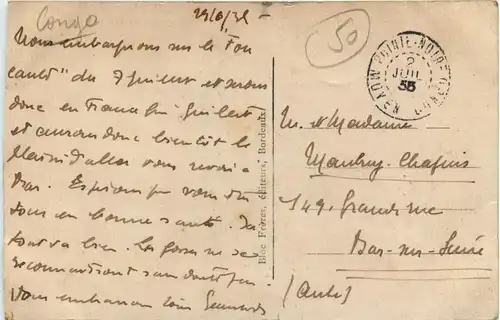 Congo
29/6/35
50
Nous embarquons sur le "Fou
cauld" du 7 Juillet et serons
donc en France fin Juillet
et aurons donc bientôt le
plaisir d'aller vous revoir à
Bar. Espérons que vous êtes
tous en bonne santé. Ici
tout va bien. Les gosses ne se
reconnaitront sans doute pas.
Vous embrassons tous
Bloc Frères, éditeurs, Bordeaux
POINTE-NOIRE
MOYEN CONGO
2
JUIL
35
M. et Madame
Maubrey-Chapuis
149 Grande rue
Bar-sur-Seine
(Aube)